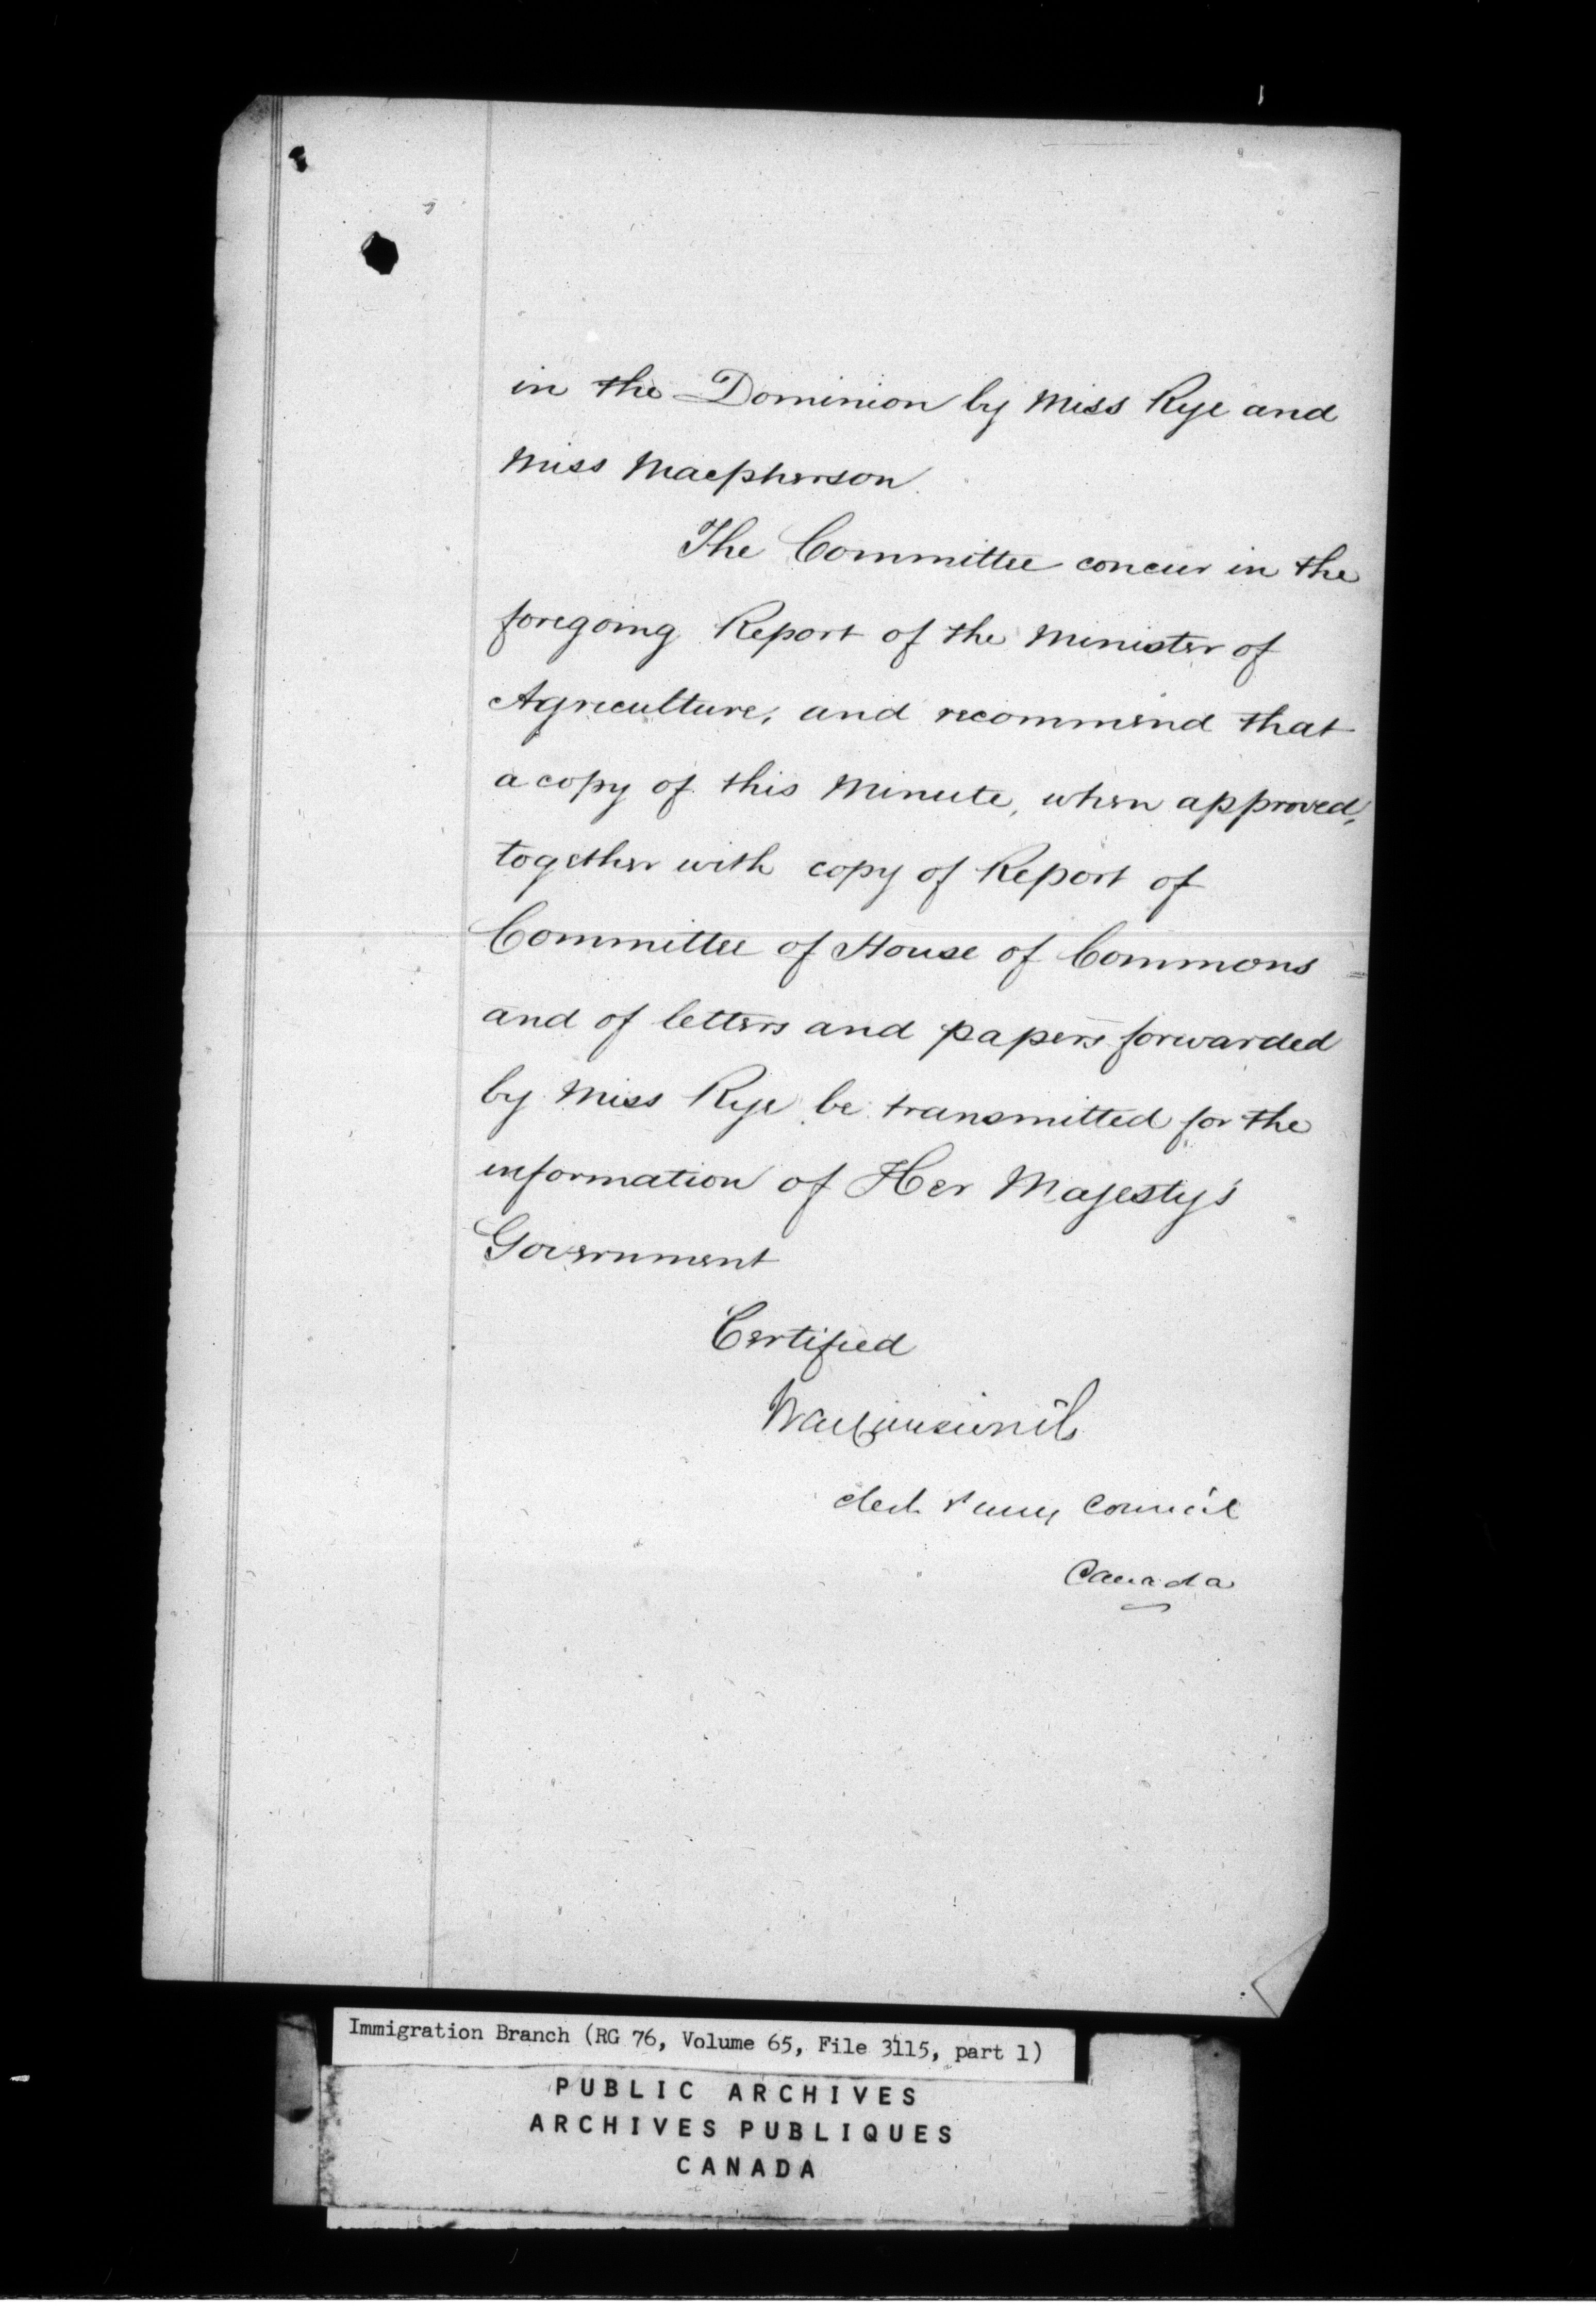 in the Dominion by Miss Rye and
Miss Macpherson.
The Committee concur in the
foregoing Report of the Minister of
Agriculture, and recommend that
a copy of this Minute, when approved,
together with copy of Report of
Committee of House of Commons
and of letters and papers forwarded
by Miss Rye be transmitted for the
information of Her Majesty's
Government
Certified
Council
Canada
Immigration Branch (RG 76, Volume 65, File 3115, part 1)
PUBLIC ARCHIVES
ARCHIVES PUBLIQUES
CANADA